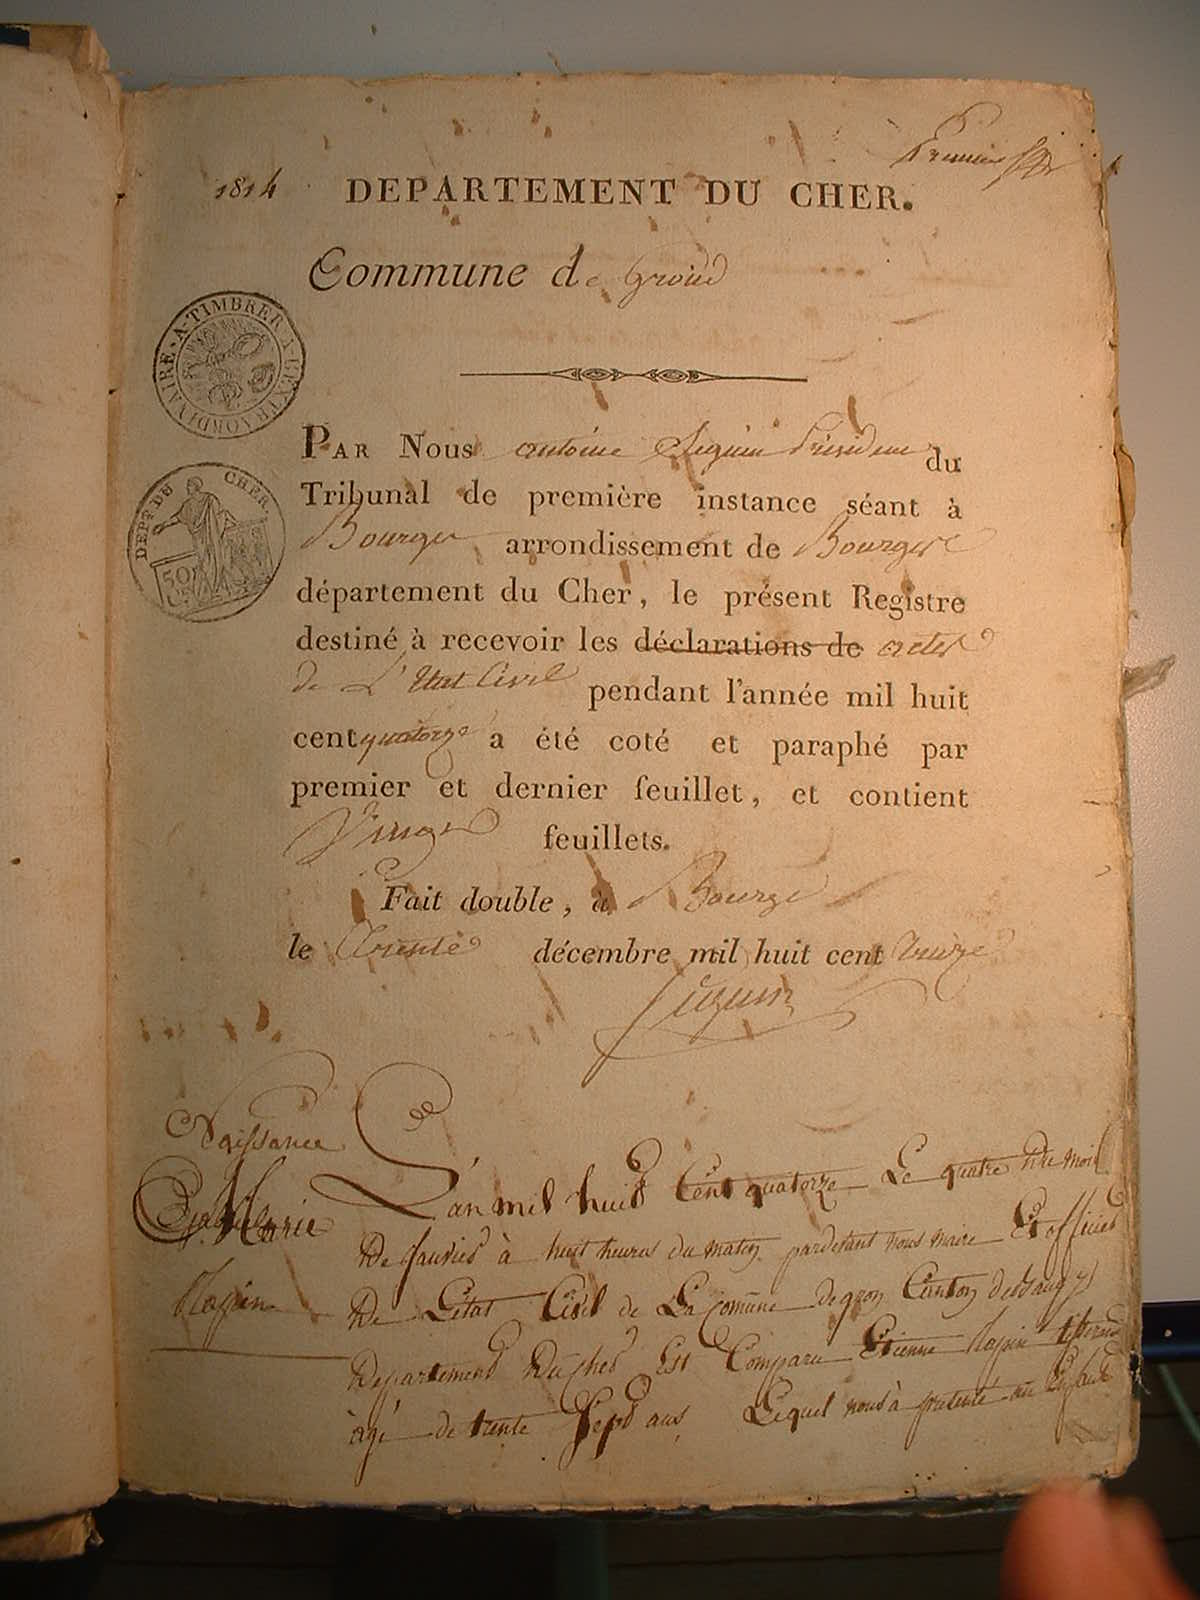 Premier
1814
DEPARTEMENT DU CHER.
Commune de Groid
A-TIMBRER A-L'EXTRAORDINAIRE
PAR Nous antoine Seguin Président du
DEPT. DU CHER.
Tribunal de première instance séant à
50
Bourges arrondissement de Bourges
département du Cher, le présent Registre
destiné à recevoir les déclarations de actes
de L'Etat Civil pendant l'année mil huit
cent quatorze a été coté et paraphé par
premier et dernier feuillet, et contient
Vingt feuillets.
Fait double, à Bourges
le trente décembre mil huit cent treize
Seguin
Naissance
Marie
L'an mil huit Cent quatorze Le quatre du mois
De janvier à huit heures du matin pardevant nous maire Et officier
De L'état Civil de La Comune de gron Canton de Baugy
Departement Du Cher Est Comparu Etienne
àgé de trente Sept ans Lequel nous à presenté un Enfant